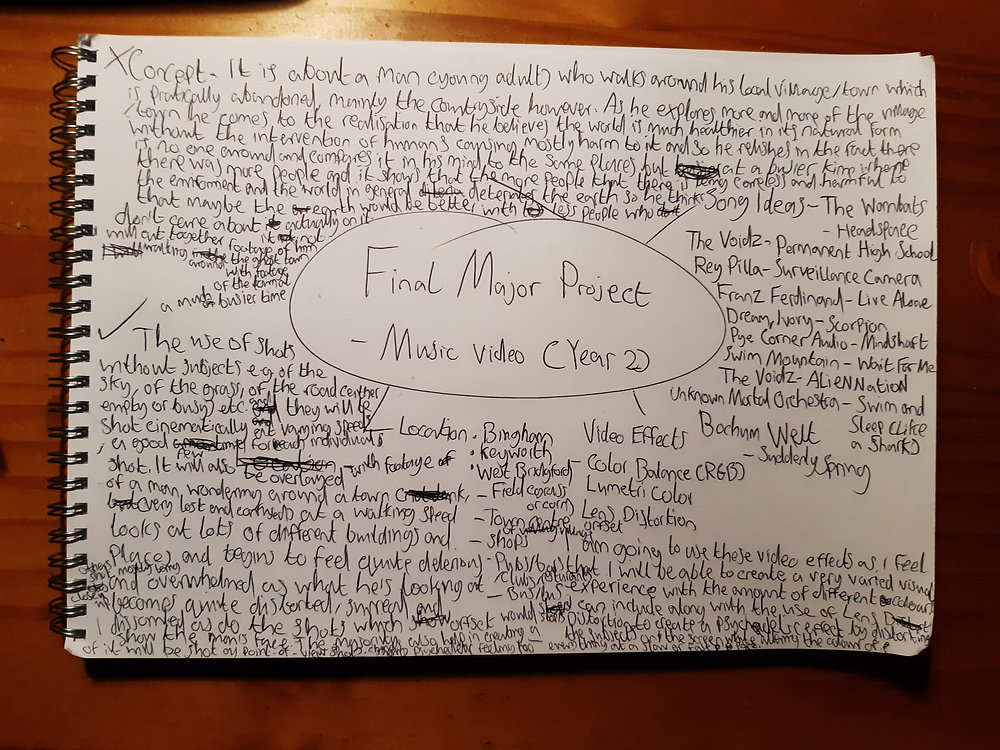 X Concept - It is about a man (young adult) who walks around his local village/town which
is pratically abandoned, mainly the countryside however. As he explores more and more of the village
/town he comes to the realisation that he believes the world is much healthier in its natural form
without the intervention of humans causing mostly harm to it and so he relishes in the fact there
is no one around and compares it in his mind to the same places but at a busier time where
there was more people and it shows that the more people that there is being careless and harmful to
the enviroment and the world in general deterates the earth so he thinks
that maybe the earth would be better with less people who
don't care about it actually on it
I will cut together footage of him
walking around the ghost town
with footage
of the
a much busier time
Final Major Project
- Music video (Year 2)
Song Ideas - The Wombats
- Headspace
The Voidz - Permanent High School
Rey Pilla - Surveillance Camera
Franz Ferdinand - Live Alone
Dream, Ivory - Scorpion
Pye Corner Audio - Mindshaft
Swim Mountain - Wait For Me
The Voidz - ALieNNatioN
Unknown Mortal Orchestra - Swim and
Sleep (Like
a Shark)
Bochum Welt
- Suddenly Spring
✓ The use of shots
without subjects e.g. of the
sky, of the grass, of the road (either
empty or busy) etc. and they will be
shot cinematically at varying speed,
a good few for each individual
shot. It will also be overlayed with footage of
of a man, wondering around a town
(very lost and confused) at a walking speed
looks at lots of different buildings and
places and begins to feel quite
and overwhelmed as what he is looking at
becomes quite distorted, surreal and
as do the shots which offset
show the man's face. The majority
of it will be shot as point-of-view shots
- Location
• Bingham
• Keyworth
• West Bridgford
- Field (grass
or corn)
- Town centre
or village
- Shops
- Pubs/bars
/clubs/resturants
- Bins/
Video Effects
- Color Balance (RGB)
Lumetri Color
Lens Distortion
Offset
I am going to use these video effects as I feel
that I will be able to create a very varied visual
experience with the amount of different colours
I can include along with the use of Lens
Distortion to create a psychedelic effect by distorting
the subjects on the screen while warming the colour of